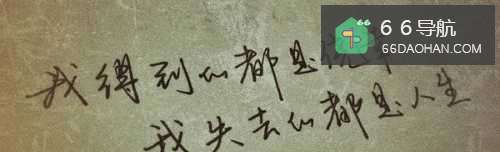 66导航
66DAOHAN.COM
我得到的都是
我失去的都是人生